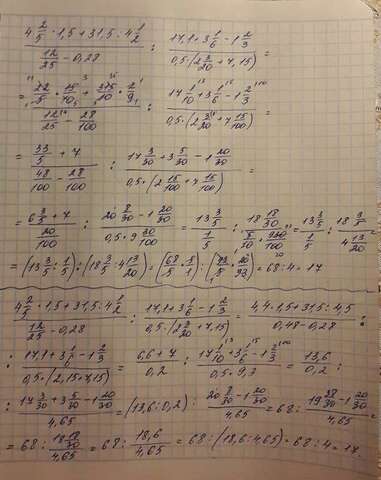 (4 2/5 · 1,5 + 31,5 : 4 1/2) / (12/25 - 0,28) : (17,1 + 3 1/6 - 1 2/3) / (0,5 · (2 3/20 + 7,15)) =
= (22/5 · 15/10 + 315/10 · 2/9) / (12/25 - 28/100) : (17 1/10 + 3 1/6 - 1 2/3) / (0,5 · (2 3/20 + 7 15/100)) =
= (33/5 + 7) / (48/100 - 28/100) : (17 3/30 + 3 5/30 - 1 20/30) / (0,5 · (2 15/100 + 7 15/100)) =
= (6 3/5 + 7) / (20/100) : (20 8/30 - 1 20/30) / (0,5 · 9 30/100) = (13 3/5) / (1/5) : (18 18/30) / (5/10 · 930/100) = (13 3/5) / (1/5) : (18 3/5) / (4 13/20) =
= (13 3/5 : 1/5) : (18 3/5 : 4 13/20) = (68/5 · 5/1) : (93/5 · 20/93) = 68 : 4 = 17
(4 2/5 · 1,5 + 31,5 : 4 1/2) / (12/25 - 0,28) : (17,1 + 3 1/6 - 1 2/3) / (0,5 · (2 3/20 + 7,15)) = (4,4 · 1,5 + 31,5 : 4,5) / (0,48 - 0,28) :
: (17,1 + 3 1/6 - 1 2/3) / (0,5 · (2,15 + 7,15)) = (6,6 + 7) / 0,2 : (17 1/10 + 3 1/6 - 1 2/3) / (0,5 · 9,3) = 13,6 / 0,2 :
: (17 3/30 + 3 5/30 - 1 20/30) / 4,65 = (13,6 : 0,2) : (20 8/30 - 1 20/30) / 4,65 = 68 : (19 38/30 - 1 20/30) / 4,65 =
= 68 : (18 18/30) / 4,65 = 68 : 18,6 / 4,65 = 68 : (18,6 : 4,65) = 68 : 4 = 17.